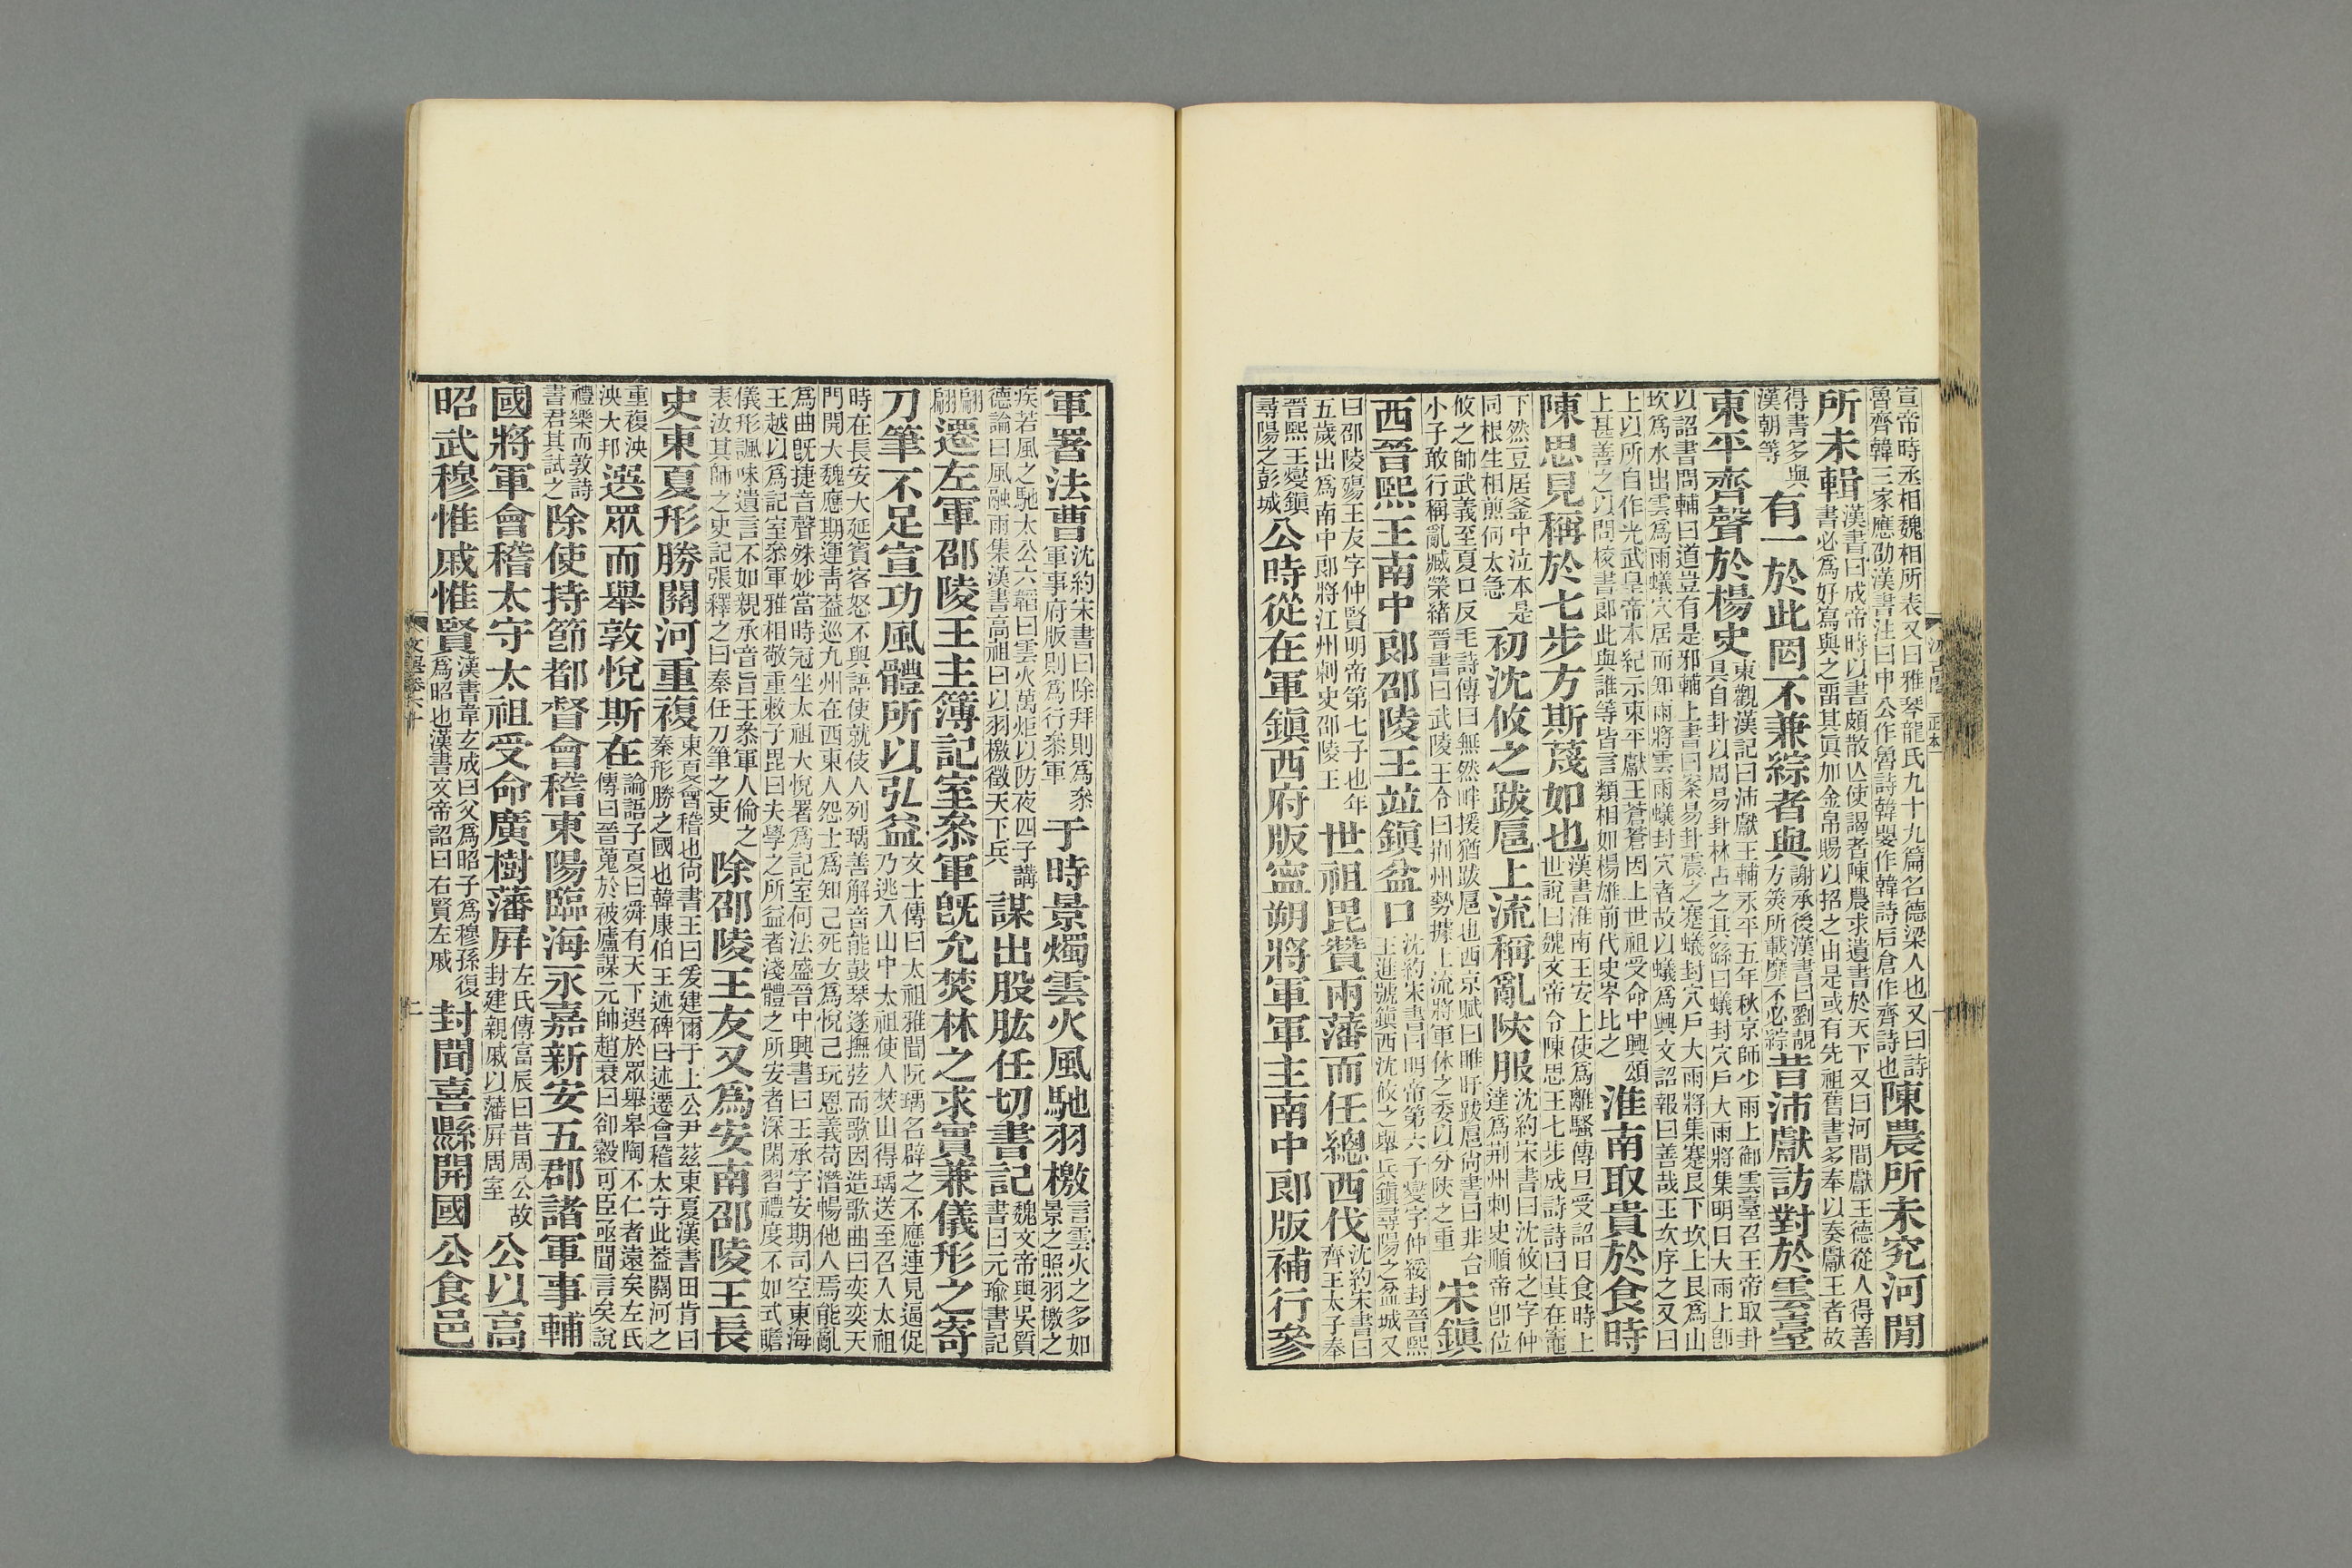 宣帝時丞相魏相所表又曰雅琴龍氏九十九篇名德梁人也又曰詩
魯齊韓三家應劭漢書注曰申公作魯詩韓嬰作韓詩后倉作齊詩也
陳農所未究河間
所未輯
漢書曰成帝時以書頗散亾使謁者陳農求遺書於天下又曰河間獻王德從人得善
書必爲好寫與之畱其眞加金帛賜以招之由是或有先祖舊書多奉以奏獻王者故
得書多與
漢朝等
有一於此罔不兼綜者與
謝承後漢書曰劉靚
方筴所載靡不必綜
昔沛獻訪對於雲臺
東平齊聲於楊史
東觀漢記曰沛獻王輔永平五年秋京師少雨上御雲臺召王帝取卦
具自卦以周易卦林占之其繇曰蟻封穴戶大雨將集明日大雨上卽
以詔書問輔曰道豈有是邪輔上書曰案易卦震之蹇蟻封穴戶大雨將集蹇艮下坎上艮爲山
坎爲水出雲爲雨蟻穴居而知雨將雲雨蟻封穴者故以蟻爲興文詔報曰善哉王次序之又曰
上以所自作光武皇帝本紀示東平獻王蒼蒼因上世祖受命中興頌
上甚善之以問校書郎此與誰等皆言類相如楊雄前代史岑比之
淮南取貴於食時
陳思見稱於七步方斯蔑如也
漢書淮南王安上使爲離騷傳旦受詔日食時上
世說曰魏文帝令陳思王七步成詩詩曰萁在竈
下然豆居釜中泣本是
同根生相煎何太急
初沈攸之跋扈上流稱亂陝服
沈約宋書曰沈攸之字仲
達爲荊州刺史順帝卽位
攸之帥武義至夏口反毛詩傳曰無然畔援猶跋扈也西京賦曰睢盱跋扈尙書曰非台
小子敢行稱亂臧榮緖晉書曰武陵王令曰荊州勢據上流將軍休之委以分陝之重
宋鎭
西晉熙王南中郎邵陵王竝鎭盆口
沈約宋書曰明帝第六子燮字仲綏封晉熙
王進號鎭西沈攸之舉兵鎭尋陽之盆城又
曰邵陵殤王友字仲賢明帝第七子也年
五歲出爲南中郎將江州刺史邵陵王
世祖毘贊兩藩而任總西伐
沈約宋書曰
齊王太子奉
晉熙王燮鎭
尋陽之彭城
公時從在軍鎭西府版寧朔將軍軍主南中郎版補行參
軍署法曹
沈約宋書曰除拜則爲叅
軍事府版則爲行叅軍
于時景燭雲火風馳羽檄
言雲火之多如
景之照羽檄之
疾若風之馳太公六韜曰雲火萬炬以防夜四子講
德論曰風融雨集漢書高祖曰以羽檄徵天下兵
謀出股肱任切書記
魏文帝與吳質
書曰元瑜書記
翩
翩
遷左軍邵陵王主簿記室叅軍旣允焚林之求實兼儀形之寄
刀筆不足宣功風體所以弘益
文士傳曰太祖雅聞阮瑀名辟之不應連見逼促
乃逃入山中太祖使人焚山得瑀送至召入太祖
時在長安大延賓客怒不與語使就伎人列瑀善解音能鼓琴遂撫弦而歌因造歌曲曰奕奕天
門開大魏應期運靑葢巡九州在西東人怨士爲知己死女爲悅己玩恩義苟潛暢他人焉能亂
爲曲旣捷音聲殊妙當時冠坐太祖大悅署爲記室何法盛晉中興書曰王承字安期司空東海
王越以爲記室叅軍雅相敬重敕子毘曰夫學之所益者淺體之所安者深閑習禮度不如式瞻
儀形諷味遺言不如親承音旨王叅軍人倫之
表汝其師之史記張釋之曰秦任刀筆之吏
除邵陵王友又爲安南邵陵王長
史東夏形勝關河重複
東夏會稽也尙書王曰爰建爾于上公尹茲東夏漢書田肯曰
秦形勝之國也韓康伯王述碑曰述遷會稽太守此葢關河之
重複泱
泱大邦
選眾而舉敦悅斯在
論語子夏曰舜有天下選於眾舉皋陶不仁者遠矣左氏
傳曰晉蒐於被廬謀元帥趙衰曰卻縠可臣亟聞言矣說
禮樂而敦詩
書君其試之
除使持節都督會稽東陽臨海永嘉新安五郡諸軍事輔
國將軍會稽太守太祖受命廣樹藩屏
左氏傳富辰曰昔周公故
封建親戚以藩屏周室
公以高
昭武穆惟戚惟賢
漢書韋玄成曰父爲昭子爲穆孫復
爲昭也漢書文帝詔曰右賢左戚
封聞喜縣開國公食邑